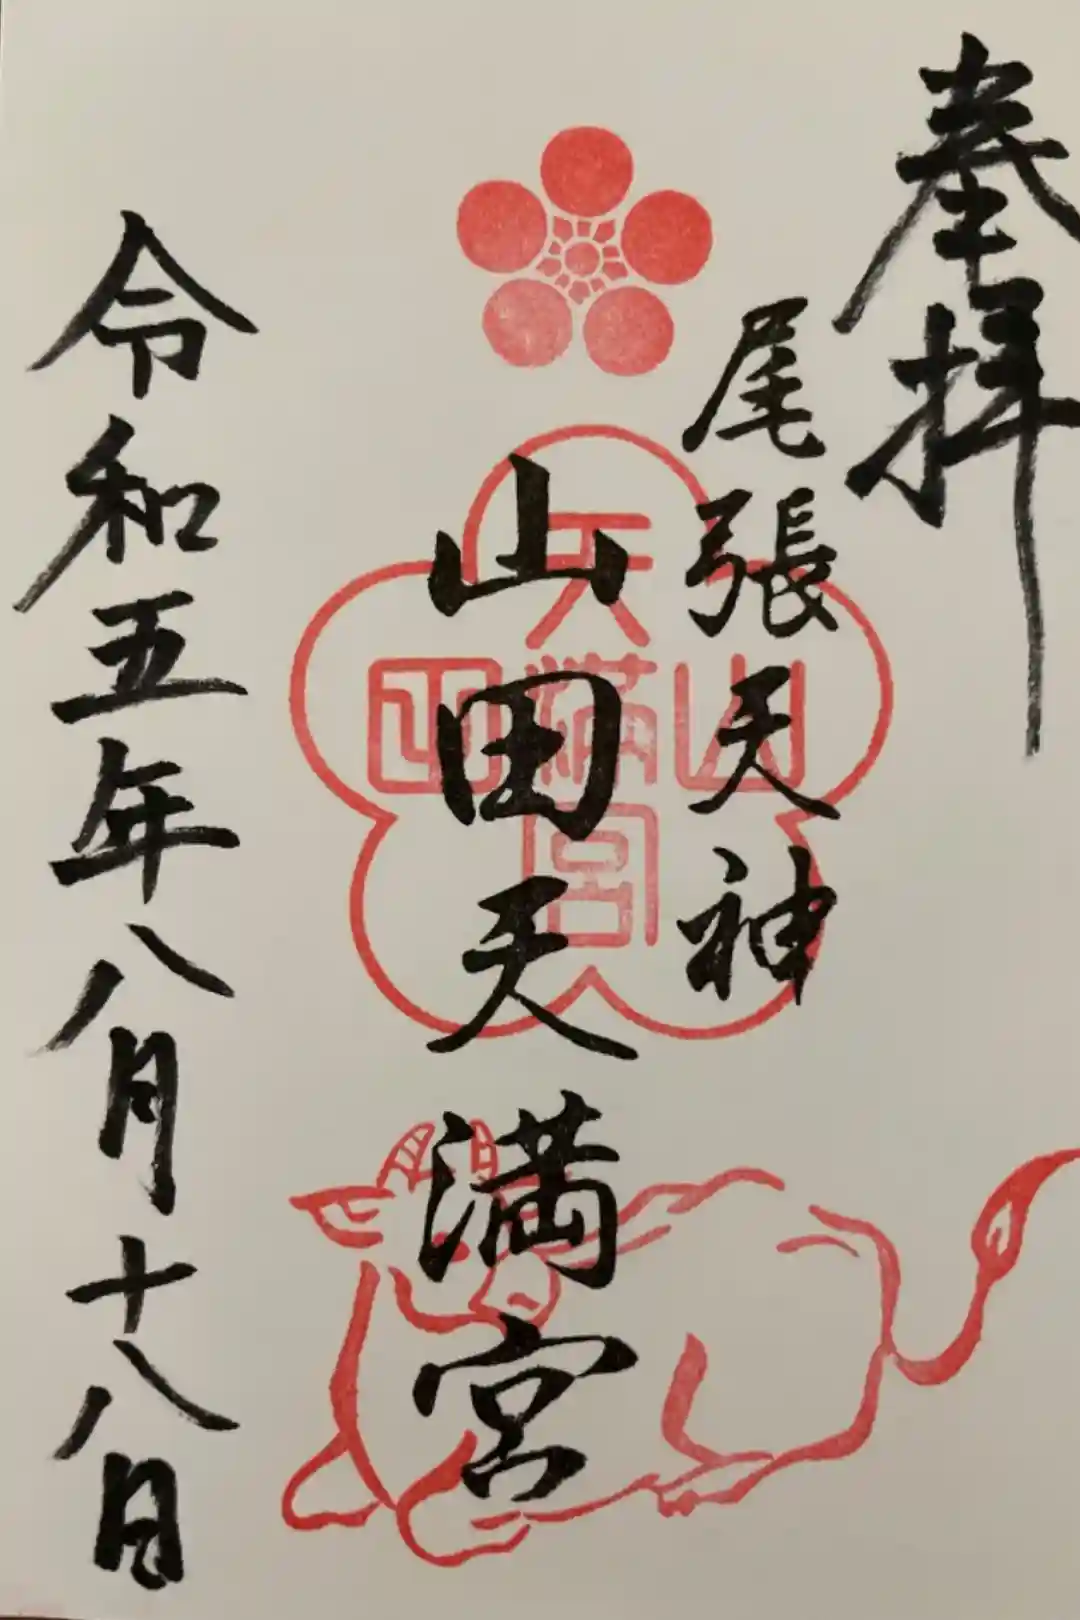 奉拝
尾張天神
山田天満宮
令和五年八月十八日
山田
天満宮